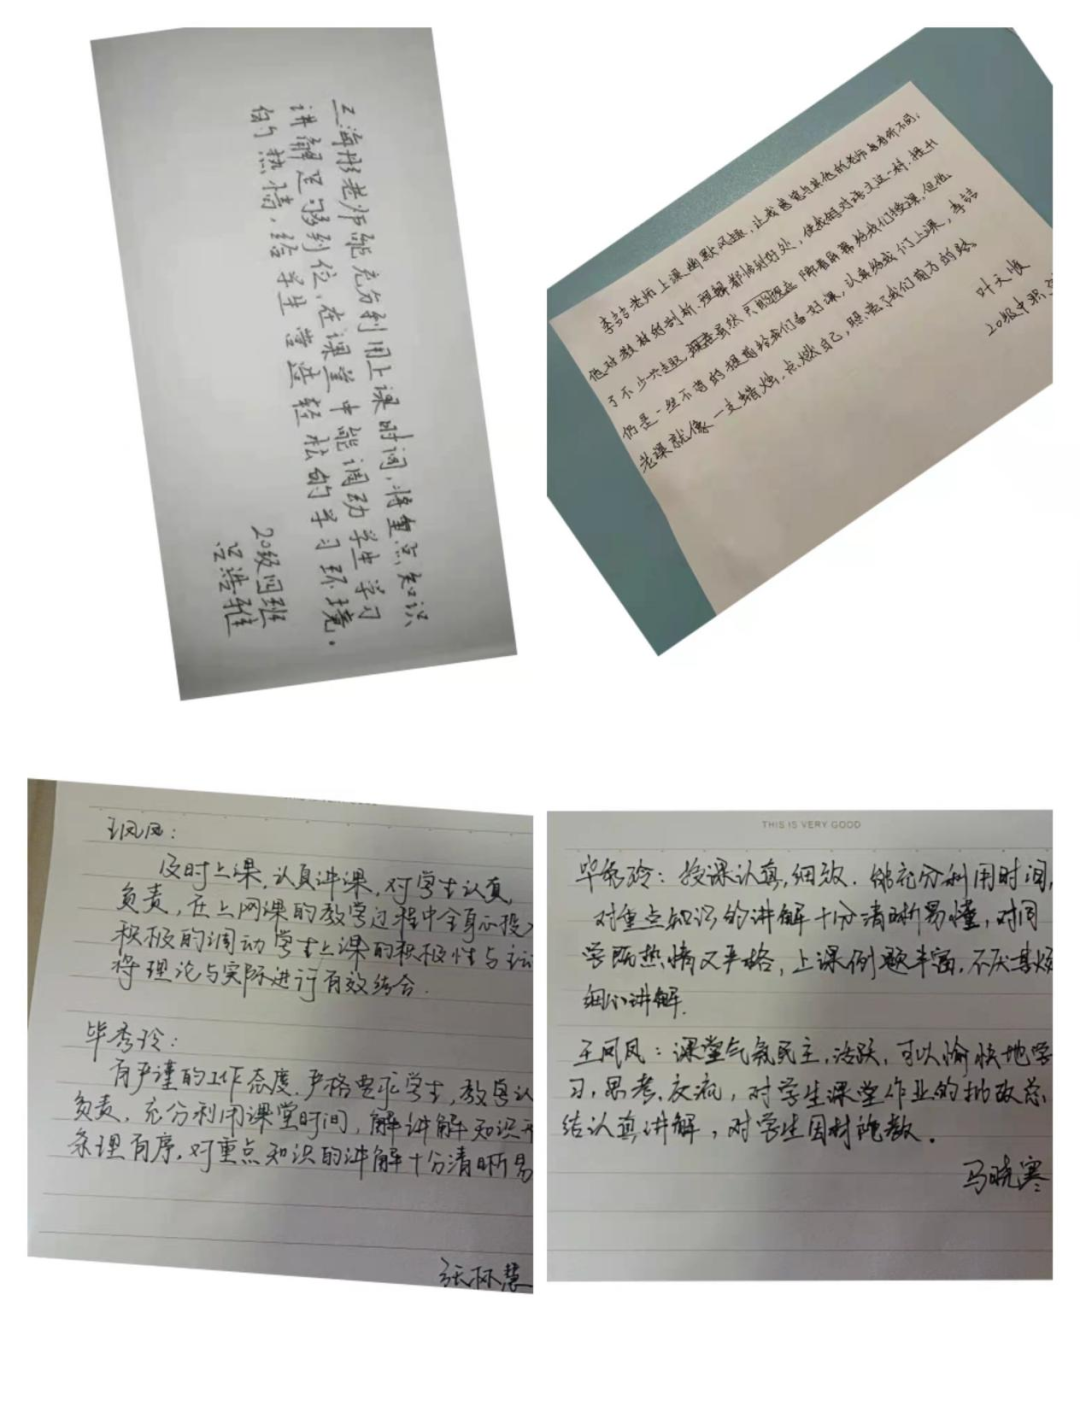 王海彤老师能充分利用上课时间，将重点知识
讲解足够到位，在课堂中能调动学生学习
的热情，给学生营造轻松的学习环境。
20级四班
吕浩雅
李喆老师上课幽默风趣，让我感觉与其他的老师有所不同，
他对教材的剖析理解都恰到好处，使我们对语文这一科，提升
了不少兴趣，虽然隔着屏幕给我们授课，但他
仍是一丝不苟的提前给我们备好课，认真给我们上课，李喆
老课就像一支蜡烛，点燃自己，照亮了我们前方的路。
叶文
20级中职
王凤凤：
及时上课，认真讲课，对学生认真
负责，在上网课的教学过程中全身心投
积极的调动学生上课的积极性与主动
将理论与实际进行有效结合.
毕秀玲：
有严谨的工作态度，严格要求学生，教学认
负责，充分利用课堂时间，解讲解知识
条理有序，对重点知识的讲解十分清晰易
张怀慧
THIS IS VERY GOOD
毕秀玲：授课认真，细致. 能充分利用时间，
对重点知识的讲解十分清晰易懂，对同
学既热情又严格，上课例题丰富，不厌其烦
细心讲解.
王凤凤：课堂气氛民主，活跃，可以愉快地学
习，思考，交流，对学生课堂作业的批改总
结认真讲解，对学生因材施教.
马晓寒